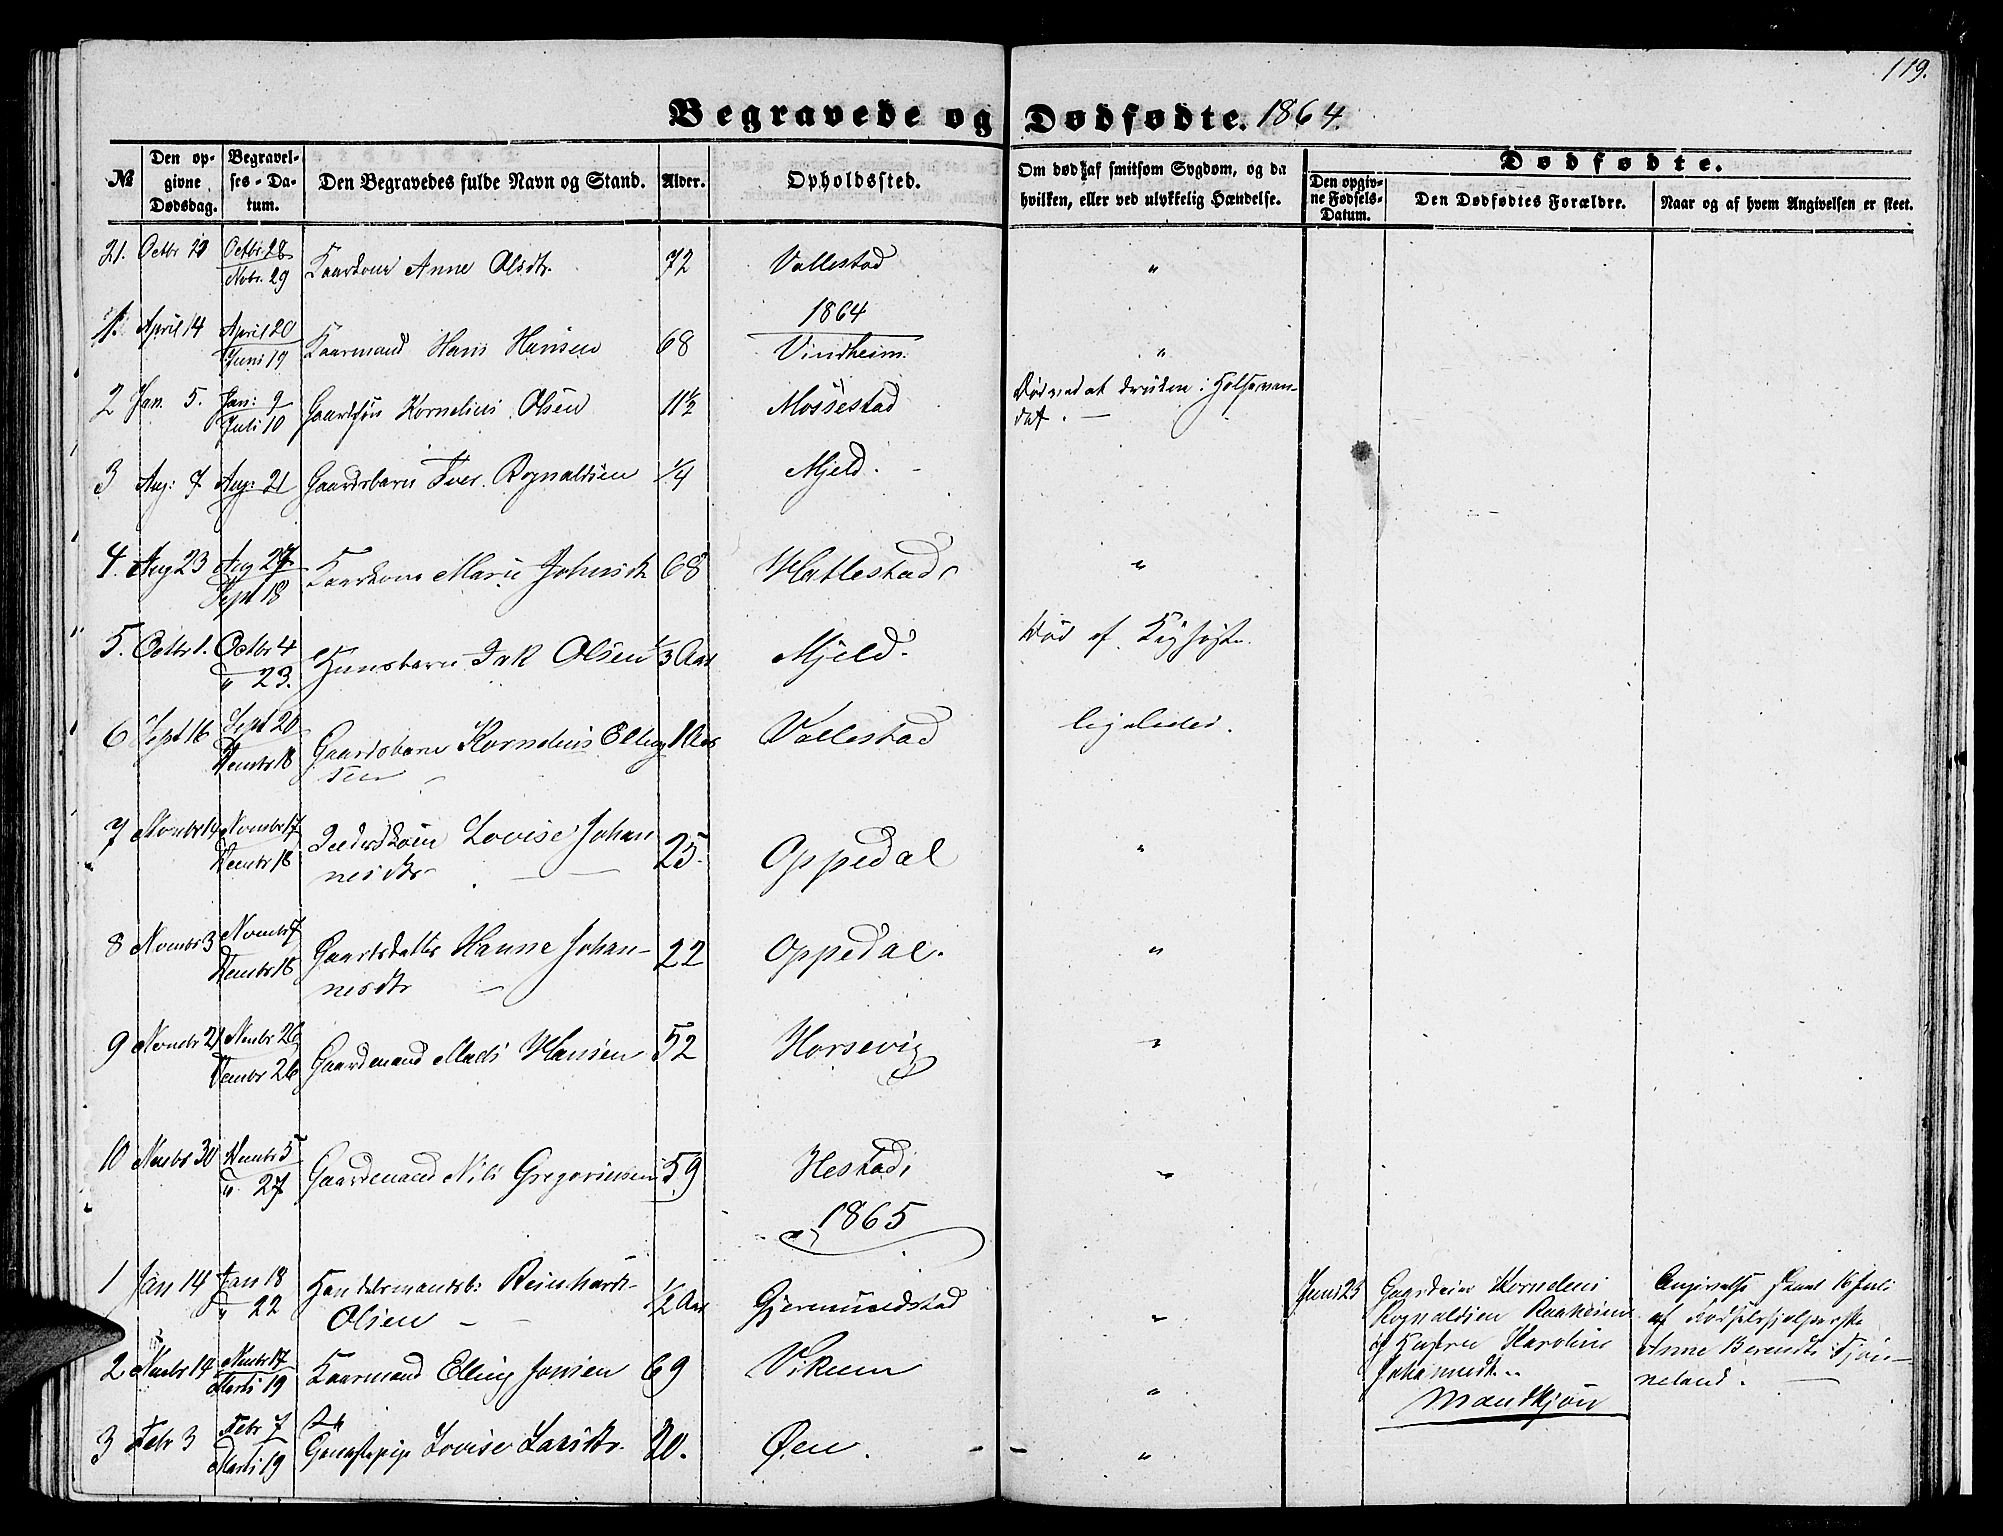 119.
Begravede og Dødfødte. 1864.
№
Den opgivne Dødsdag.
Begravelses-Datum.
Den Begravedes fulde Navn og Stand.
Alder.
Opholdssted.
Om død af smitsom Sygdom, og da hvilken, eller ved ulykkelig Hændelse.
Dødfødte.
Den opgivne Fødsels-Datum.
Den Dødfødtes Forældre.
Naar og af hvem Angivelsen er skeet.
21. Octbr Octbr 28 Kaarkone Anne Olsdtr. 72 Vallestad "
Nobr. 29
1864
1. April 14 April 20 Kaarmand Hans Hansen 68 Vindheim. "
Juni 19
2 Jan. 5. Jan: 9 Gaardsøn Kornelius Olsen 11½ Mossestad Død ved at drukne i Holsevan-
Juli 10 det. —
3 Aug: 7 Aug: 21 Gaardsbarn Iver Rognaldsen ¼ Mjeld.
4. Aug 23 Aug 27 Kaarkone Marie Johnsdtr 68 Hatlestad "
Sept 18
5. Octbr 1. Octbr 4 Olsen ⅓ Aar Mjeld. Død af Kighoste.
" 23.
6 Sept 16 Sept 20 Gaardsbarn Kornelius Elling 1 Aar Vallestad ligeledes.
Decmbr 18 sen
7 Novmbr 14 Novmbr 17 Lovise Johan 25. Oppedal "
Decmbr 18 nesdtr
8 Novmbr 3 Novmbr 7 Gaardsdatter Hanne Johan- 22 Oppedal. "
Decmbr 18 nesdtr —
9 Novmbr 21 Novmbr 26 Gaardmand Mads Hansen 52 Horsevig "
Decmbr 26
10 Novmbr 30 Decmbr 5 Gaardmand Nils Gregoriussen 59 Hestad "
" 27
1865
1 Jan 14 Jan 18 Handelsmandsb: Reinhardt ½ Aar Gjermundstad "
" 22 Olsen —
Juni 25 Gaardeier Kornelius Angivelse skeet 16 Juli
Rognaldsen Raaheim af Fødselshjelperske
og Hustru Karoline Anne Berendtdtr
Johannesdtr. neland. —
Mandkjøn
2 Novmbr 14 Novmbr 17 Kaarmand Elling Jonsen 69 Vikum "
Marts 19
3 Febr 3 Febr 7 Lovise Larsdtr. 20. Øen. "
Marts 19